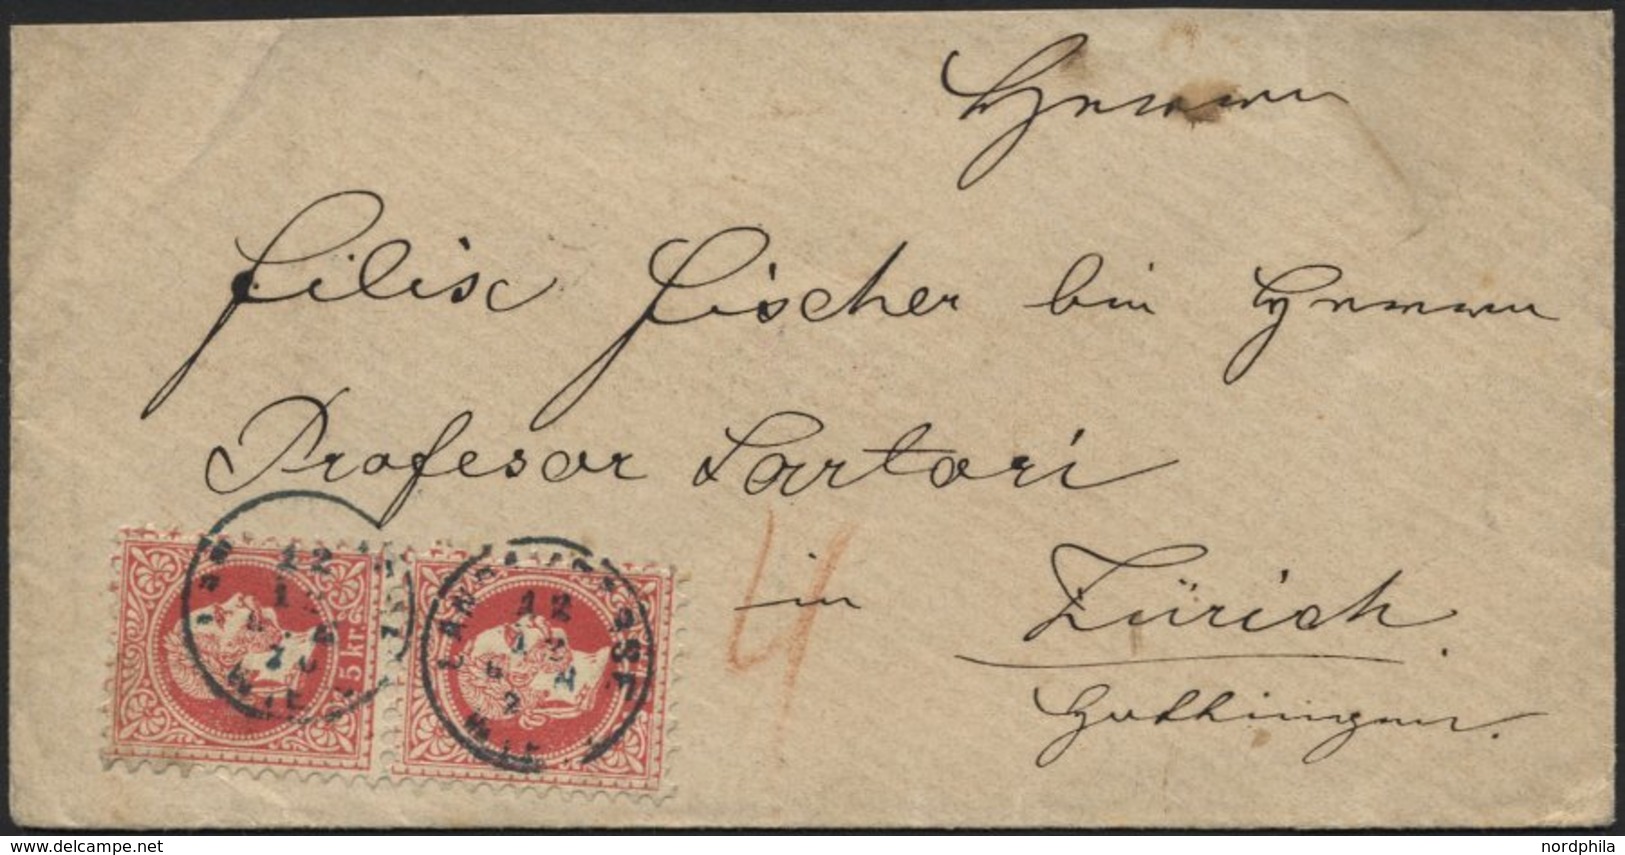 Herrn
Felix Fischer bei Herrn
Profesor Sartori
in Zürich.
Hottingen.
4
5 kr.
12
12
LANDSTRASSE
WIEN
delcampe.net
nordphila